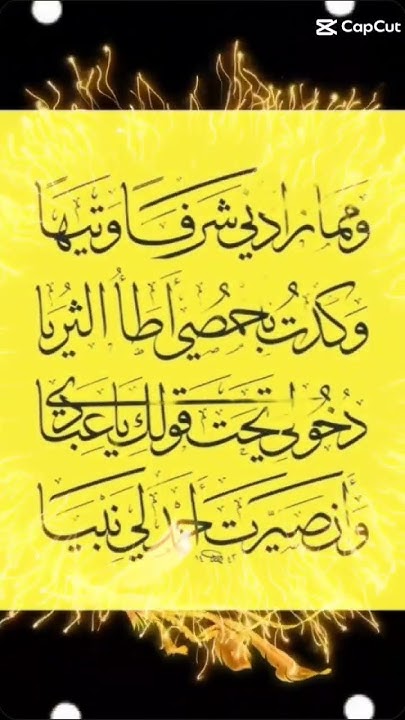 CapCut
ومما زادني شرفا وتيها
وكدت بأخمصي أطأ الثريا
دخولي تحت قولك يا عبادي
وأن صيرت أحمد لي نبيا